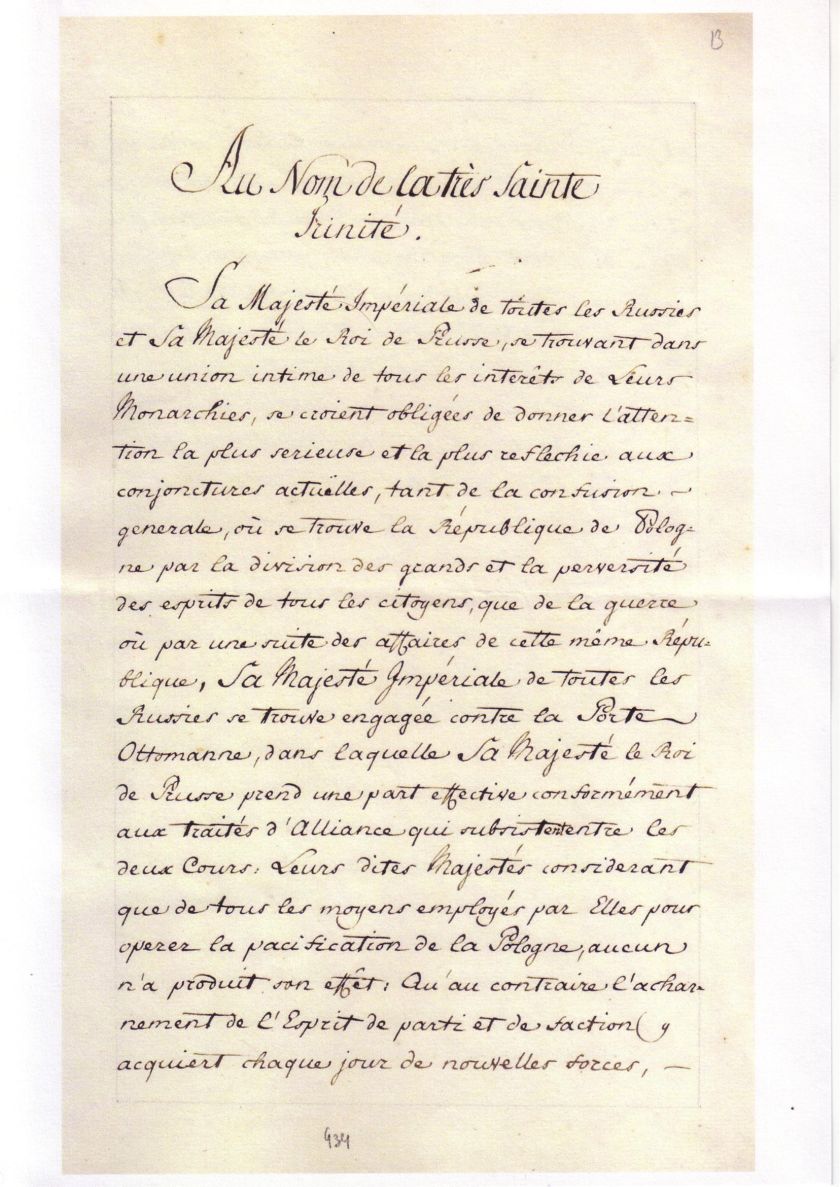 B
Au Nom de la très Sainte
Trinité.
Sa Majesté Impériale de toutes les Russies
et Sa Majesté le Roi de Prusse, se trouvant dans
une union intime de tous les interêts de Leurs
Monarchies, se croient obligées de donner l'atten=
tion la plus serieuse et la plus reflechie aux
conjonctures actuëlles, tant de la confusion -
generale, où se trouve la République de Polog=
ne par la division des grands et la perversité
des esprits de tous les citoyens, que de la guerre
où par une suite des affaires de cette même Répu=
blique, Sa Majesté Impériale de toutes les
Russies se trouve engagée contre la Porte
Ottomanne, dans laquelle Sa Majesté le Roi
de Prusse prend une part effective conformément
aux traités d'Alliance qui subsistent entre les
deux Cours: Leurs dites Majestés considerant
que de tous les moyens employés par Elles pour
operer la pacification de la Pologne, aucun
n'a produit son effêt: Qu'au contraire l'achar=
nement de l'Esprit de parti et de faction y
acquiert chaque jour de nouvelles forces, -
434